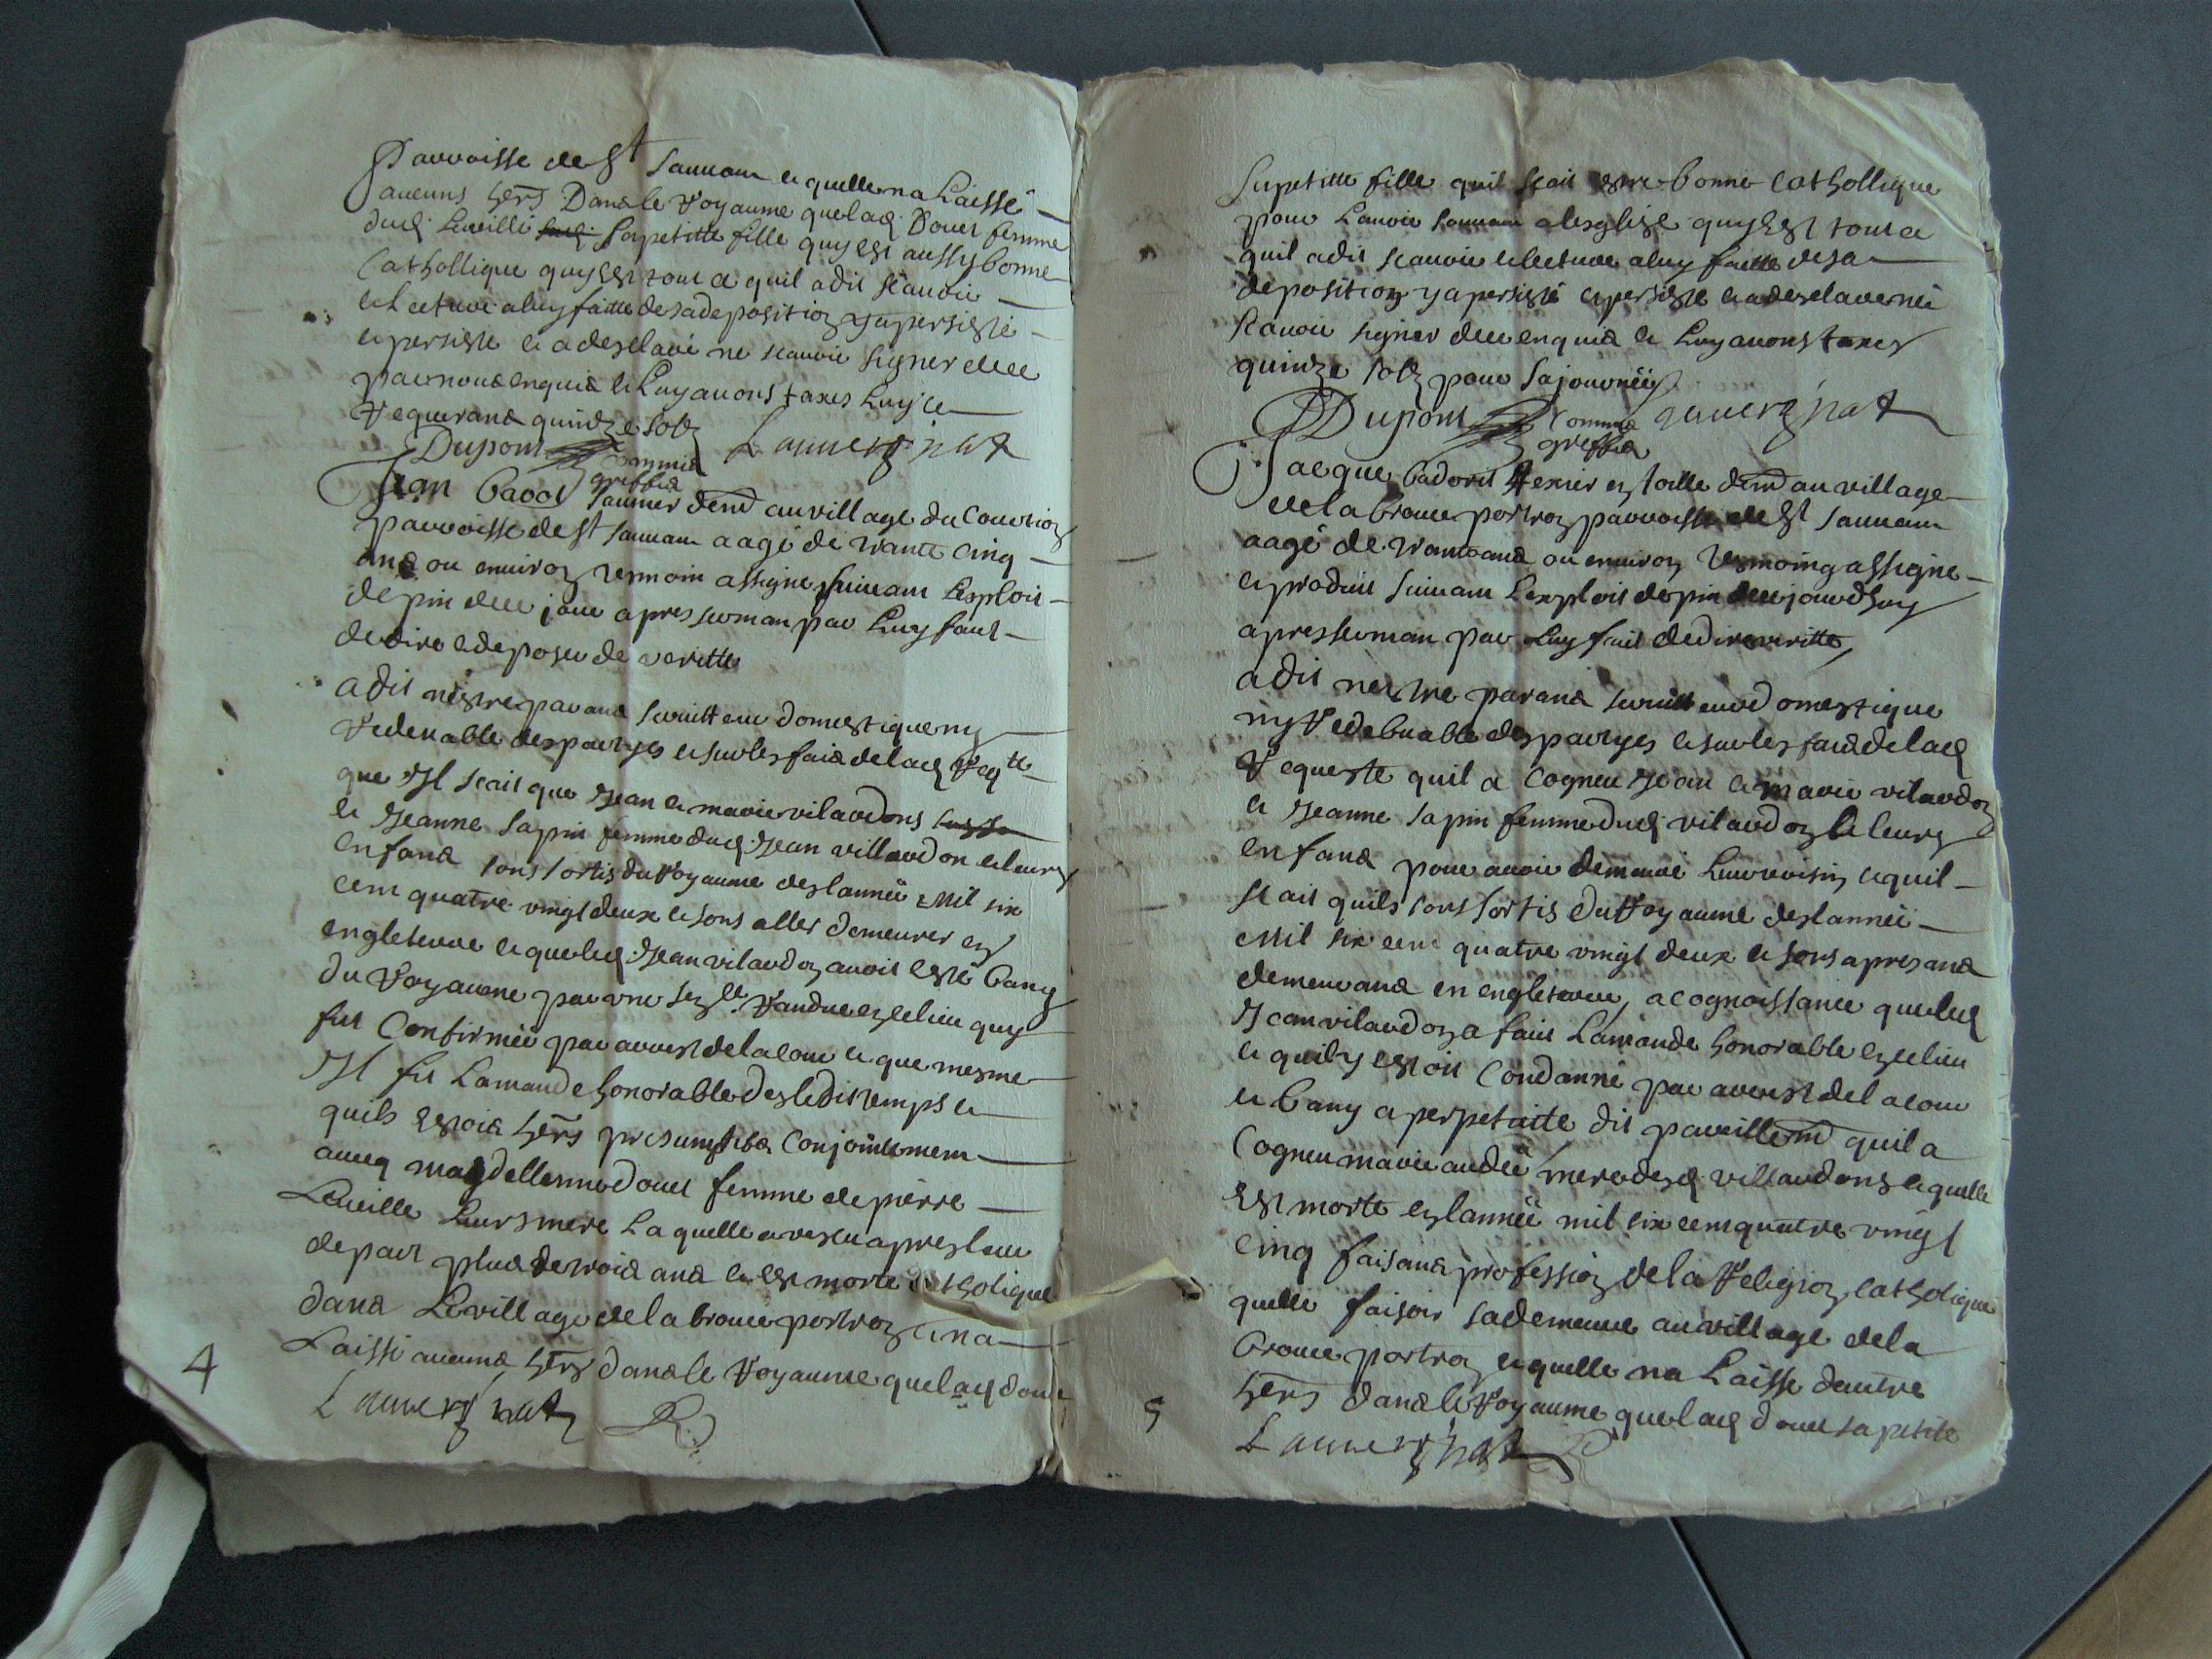 Parroisse de St Sauuan et quelle na Laissé
aucuns hers Dans le Royaume que lad. Douet femme
dud. Lucillé sa petitte fille quy est aussy bonne
Catholligue quy est tout ce quil a dit scauoir
et Lecture a luy faitte de sa deposition y a persisté
et persiste et a desclaré ne scauoir signer
par nous enquis et Luy auons taxes Luy ce
Requerant quinze solz
Dupont Commis greffier Lauuergnat
Jean saunier demt au village du Courtiou
parroisse de st sauuan aagé de trante cinq
ans ou enuiron tesmoin assigné suiuant Lexploit
depin de ce jour apres serman par Luy fait
de dire et deposer de veritte
a dit nestre parans seruitteur domestique ny
Redeuable des partyes et sur les fais de lad Reqte
que Il scait que Jean et marie vilaudons
et Jeanne sapin femme dud. Jean villaudon et leurs
enfans sont sortis du Royaume des lannée Mil six
cent quatre vingt deux et sont alles demeurer en
engleterre et que led. Jean vilaudon auoit esté bany
du Royaume par vne Randue en ce lieu quy
fut Confirmée par arrest de la cour et que mesme
Il fit Lamande honorable des le dit temps et
quils estois hers presumptifs Conjointement
aueq magdellenne douet femme de pierre
Lucille Leurs mere Laquelle a vescu apres leur
depart plus de trois ans et est morte Catholique
dans Le village de la broue portron et na
Laissé aucuns hers dans le Royaume que lad doue
Lauuergnat
4
Sa petitte fille quil scait estre bonne Catholligue
pour Lauoir souuant a lesglize quy Est tout ce
quil a dit scauoir et lecture a luy faitte de sa
deposition y a persisté et persiste et a desclaré né
scauoir signer de ce enquis et Luy auons taxes
quinze solz pour sa journée
Dupont Commis greffier Lauuergnat
Jacque texier en toille demt au village
de la broue portron parroisse de St Sauuan
aagé de trante ans ou enuiron tesmoing assigné
et produit suiuant Lexploit depin de ce jourdhuy
apres serman par Luy fait de dire veritte
a dit nestre parans seruitteur domestique
ny Redebuable des partyes et sur les fais de lad
Requeste quil a Cogneu Jean et marie vilaudon
et Jeanne sapin femme dud. vilaudon et leurs
enfans pour auoir demeuré Leur voisin et quil
scait quils sont sortis du Royaume des lannée
Mil six cent quatre vingt deux et sont apresans
demeurans en engleterre, a cognoissance que led
Jean vilaudon a fait Lamande honorable en ce lieu
et quil y estoit Condanné par arrest de la cour
et bany a perpetuitte dit pareillemt quil a
Cogneu marie audée mere desd villaudons et quelle
Est morte en lannée mil six cent quatre vingt
cinq faisans profession de la Religion catholique
quelle faisoit sa demeure au village de la
broue portron et quelle na Laisse dautre
hers dans le Royaume que lad doue sa petite
Lauuergnat
5